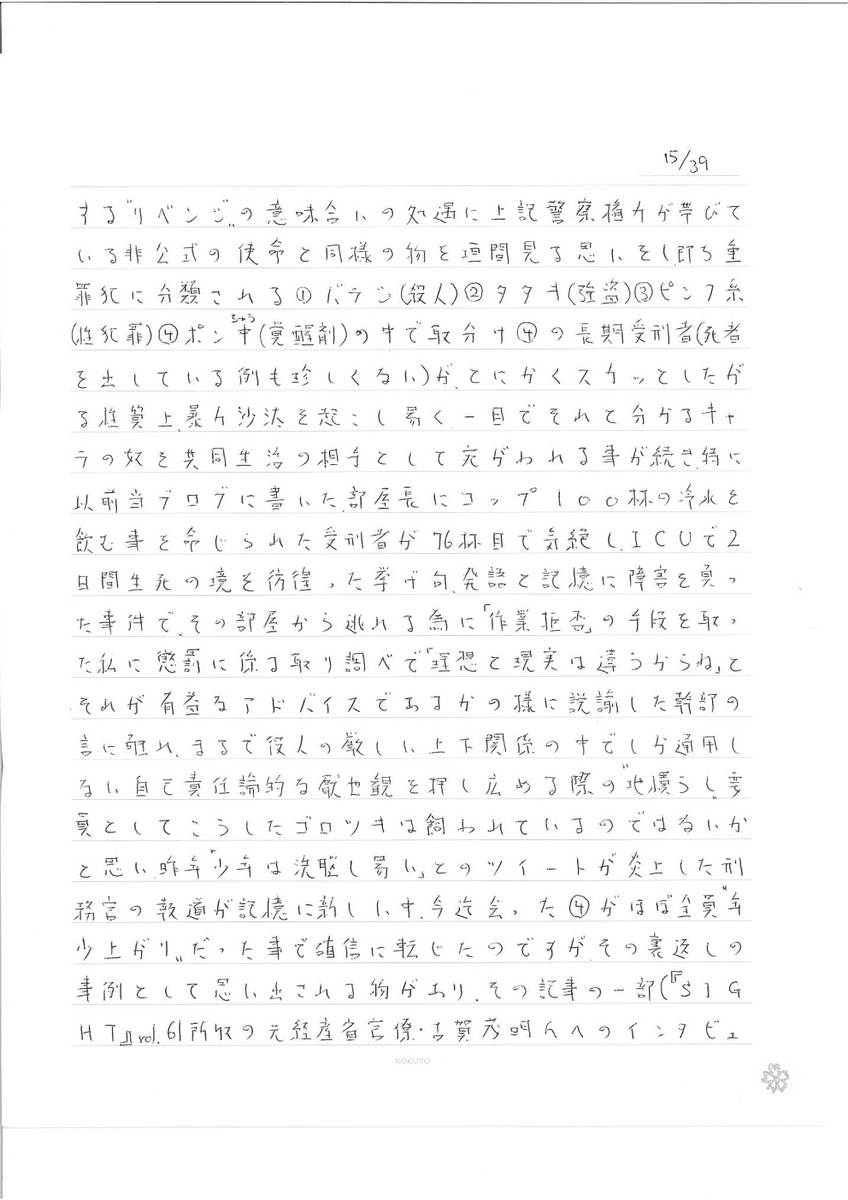 15/39
する〝リベンジ〟の意味合いの処遇に上記警察権力が帯びて
いる非公式の使命と同様の物を垣間見る思いをし、即ち重
罪犯に分類される①バラシ(殺人)②タタキ(強盗)③ピンク系
(性犯罪)④ポン中(覚醒剤)の中で取分け④の長期受刑者(死者
ちゅう
を出している例も珍しくない)が、とにかくスカッとしたが
る性質上、暴力沙汰を起こし易く、一目でそれと分かるキャ
ラの奴を共同生活の相手として充がわれる事が続き、特に
以前当ブログに書いた、部屋長にコップ100杯の冷水を
飲む事を命じられた受刑者が76杯目で気絶し、ICUで2
日間生死の境を彷徨った挙げ句、発語と記憶に障害を負っ
た事件で、その部屋から逃れる為に「作業拒否」の手段を取っ
た私に懲罰に係る取り調べで「理想と現実は違うからね」と
それが有益なアドバイスであるかの様に説諭した幹部の
言に触れ、まるで役人の厳しい上下関係の中でしか通用し
ない自己責任論的な厭世観を押し広める際の〝地慣らし〟要
員としてこうしたゴロツキは飼われているのではないか
と思い、昨年「少年は洗脳し易い」とのツイートが炎上した刑
務官の報道が記憶に新しい中、今迄会った④がほぼ全員〝年
少上がり〟だった事で確信に転じたのですが、その裏返しの
事例として思い出される物があり、その記事の一部(『SIG
HT』vol.61所収の元経産省官僚・古賀茂明氏へのインタビュ
KOKUYO